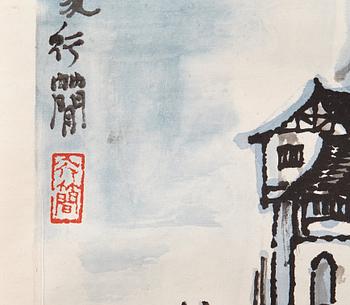 行簡
行簡